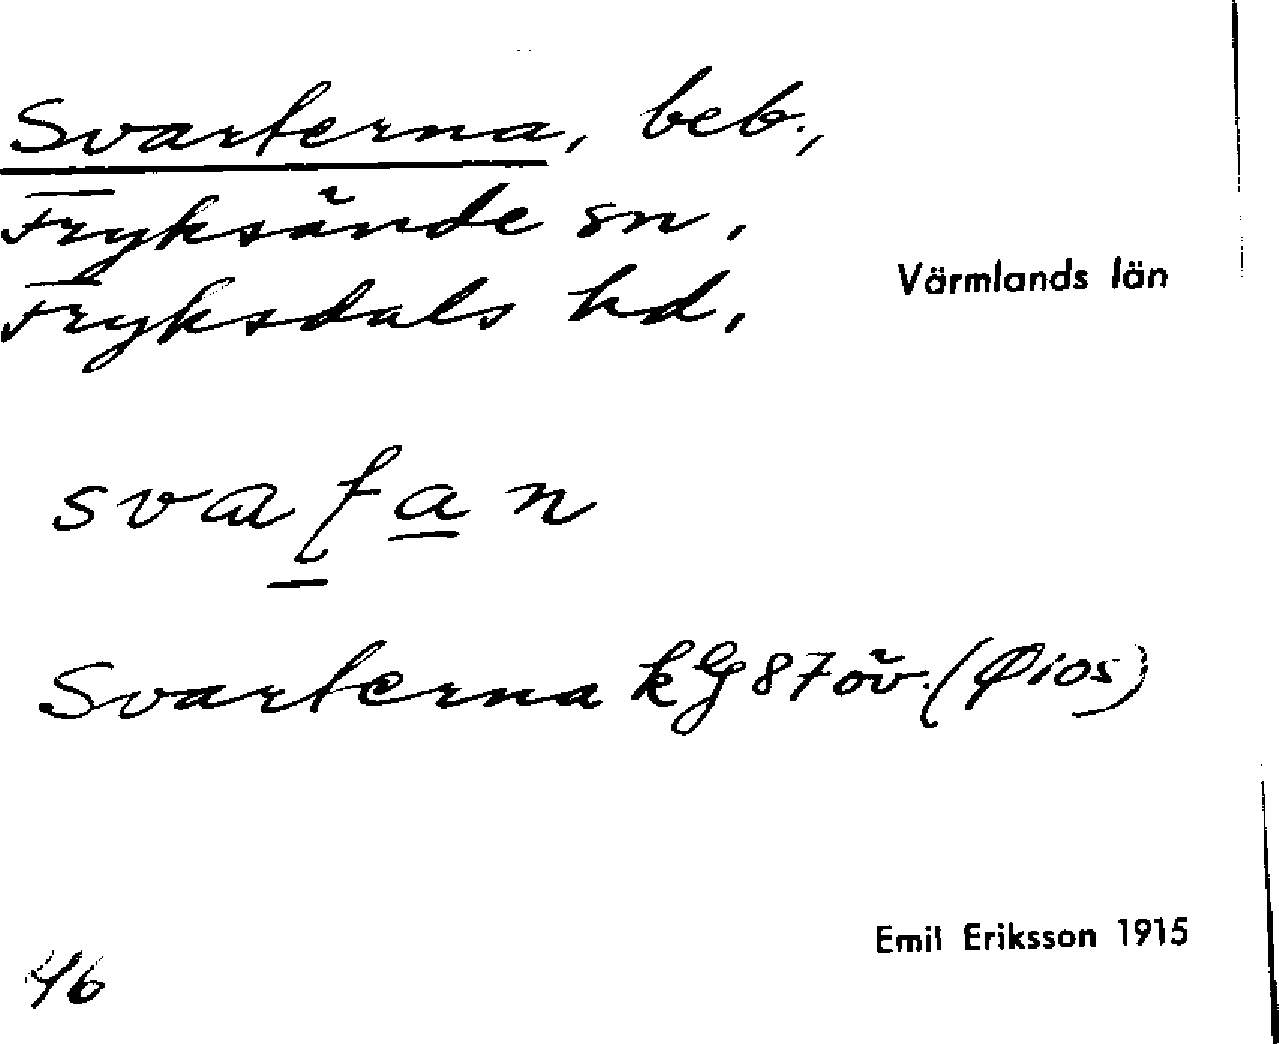 Svarterna, beb.,
Fryksände sn,
Fryksdals hd,
Värmlands län
Svarterna kG 87 öv.
Emil Eriksson 1915
46